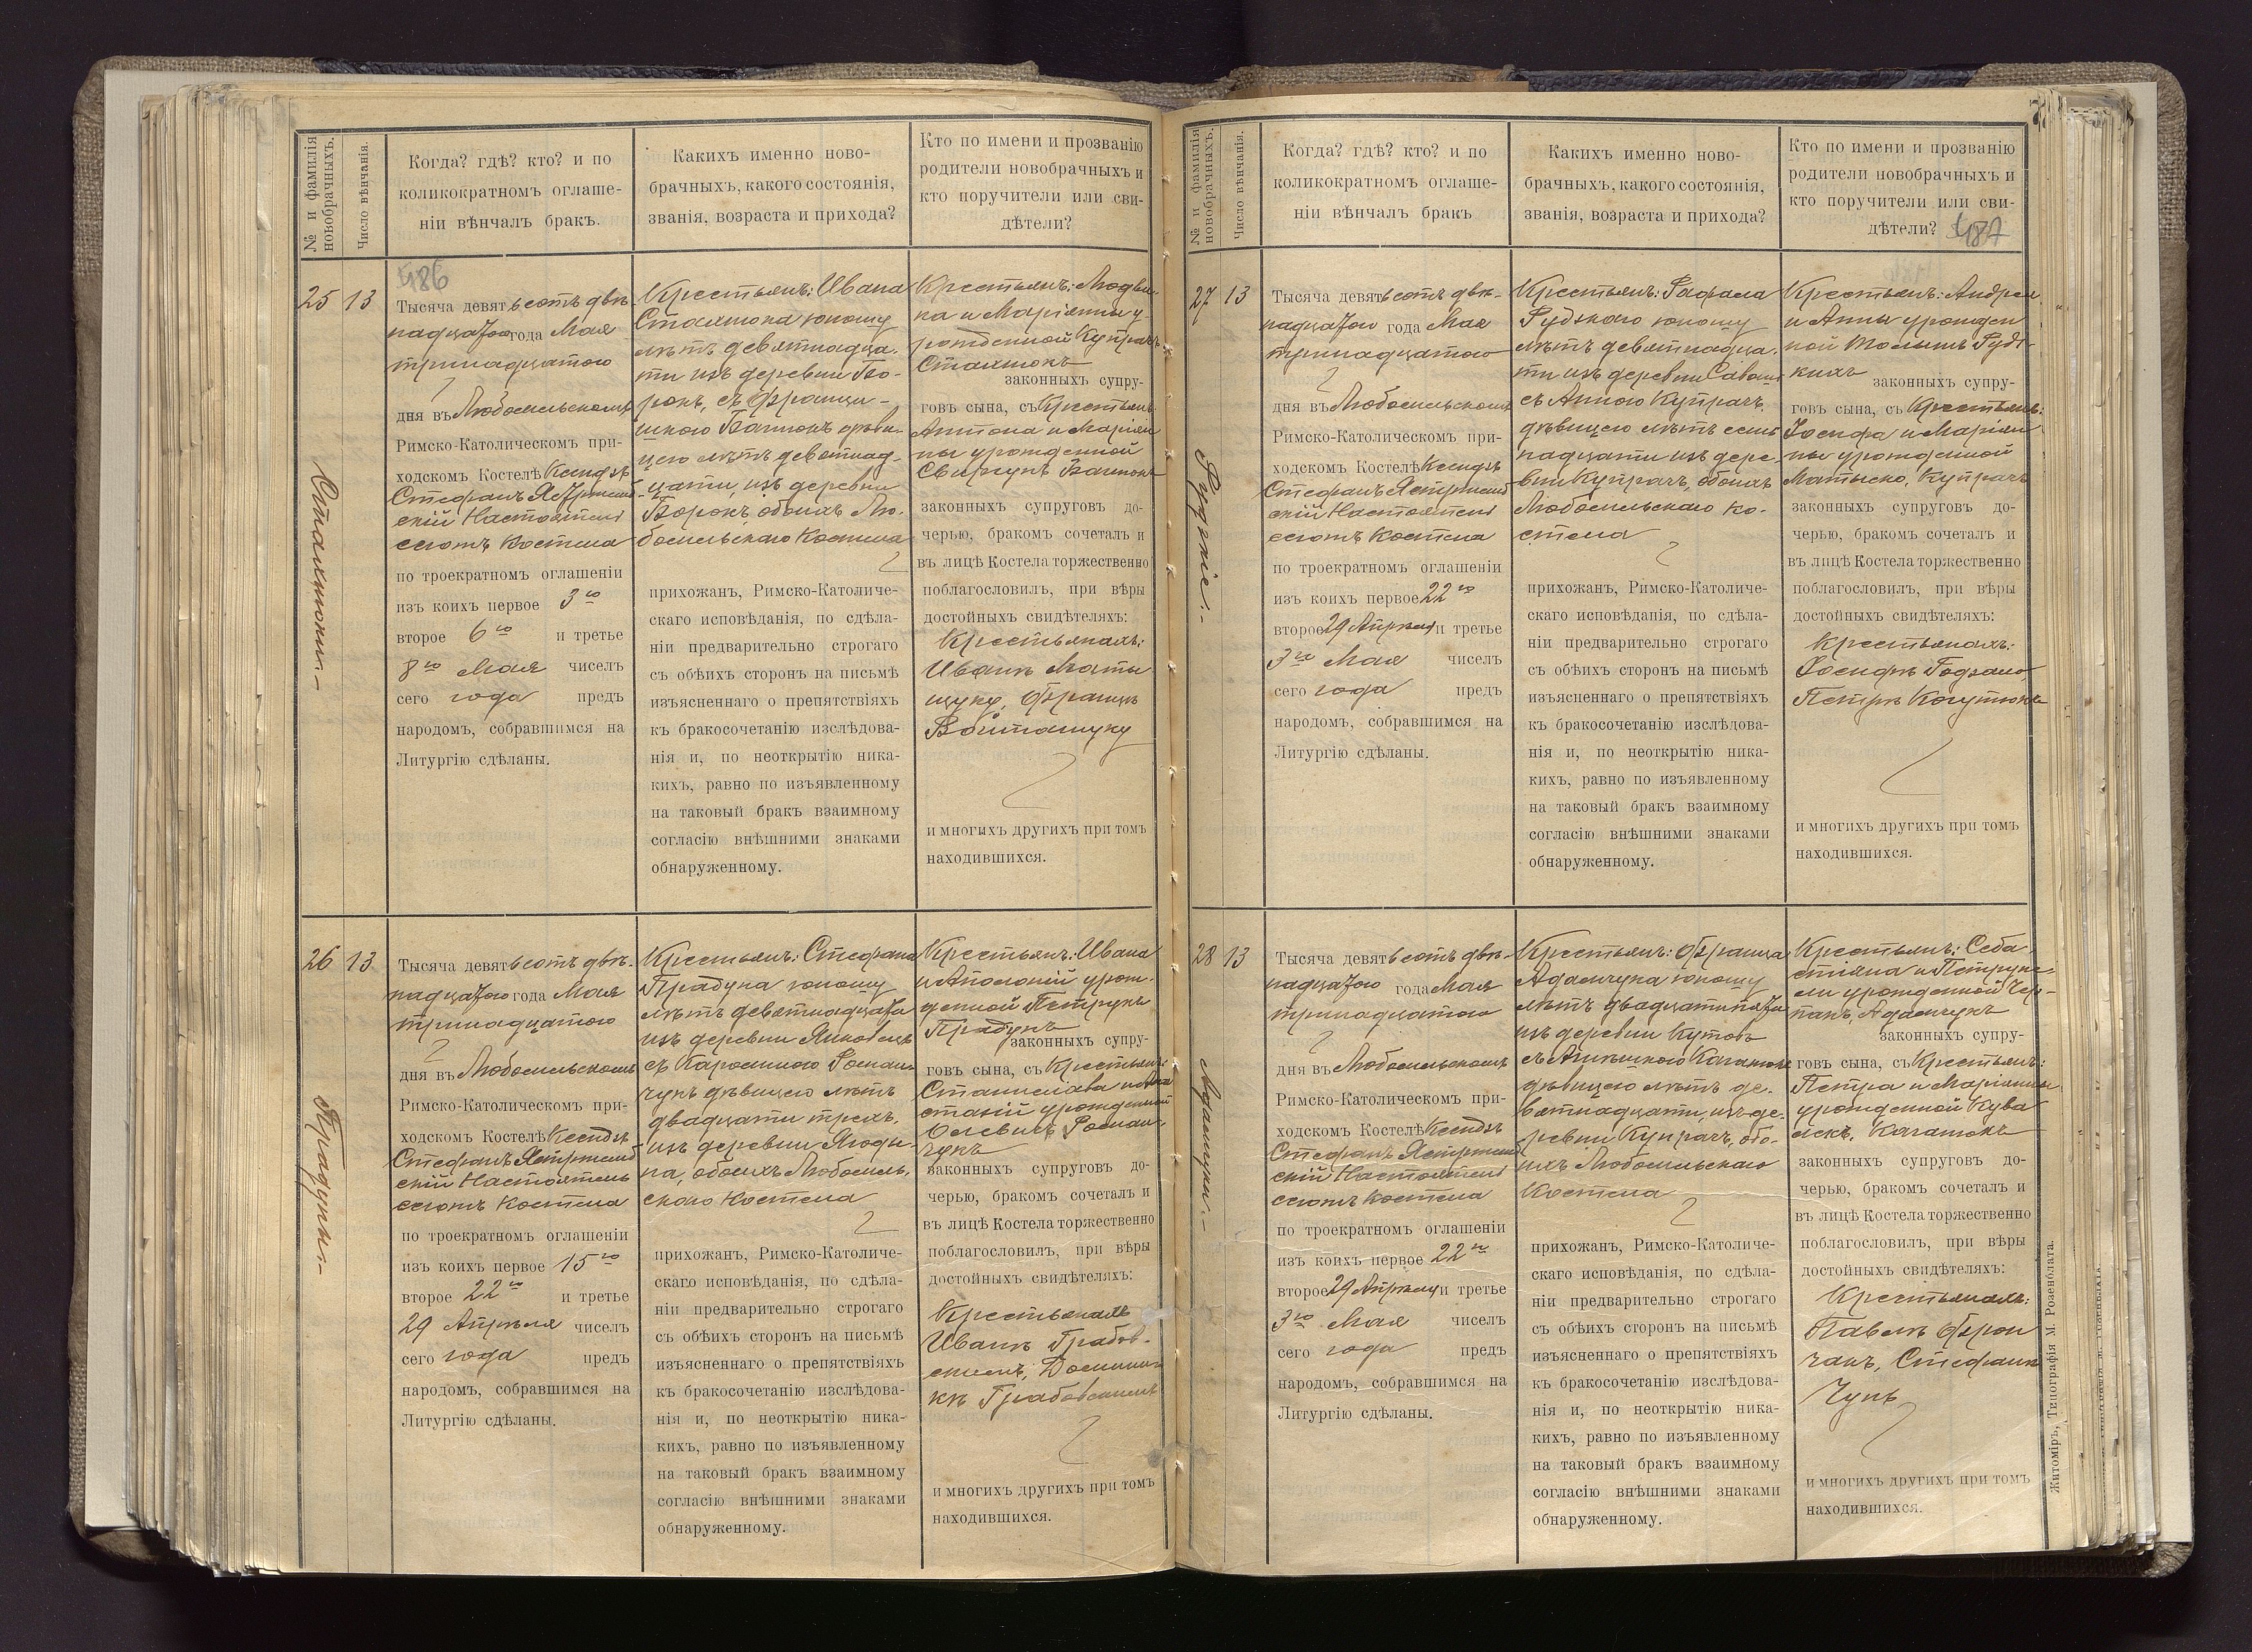 № и фамилія новобрачныхъ.
Число вѣнчанія.
Когда? гдѣ? кто? и по
коликократномъ оглаше-
ніи вѣнчалъ бракъ.
Какихъ именно ново-
брачныхъ, какого состоянія,
званія, возраста и прихода?
Кто по имени и прозванію
родители новобрачныхъ и
кто поручители или сви-
дѣтели?
25
13
Стахнюки.-
486
Тысяча девятьсотъ двѣ-
надцатого года Мая
тринадцатого
дня въ Любомльскомъ
Римско-Католическомъ при-
ходскомъ Костелѣ Ксендзъ
Стефанъ Ястржемб-
скій Настоятель
сегожъ Костела
по троекратномъ оглашеніи
изъ коихъ первое 3го
второе 6го и третье
8го Мая чиселъ
сего года предъ
народомъ, собравшимся на
Литургію сдѣланы.
Крестьянъ: Ивана
юношу
лѣтъ девятнадца-
ти изъ деревни Бо-
рокъ, съ Франци-
шкою дѣви-
цею лѣтъ девятнад-
цати, изъ деревни
Борокъ, обоихъ Лю-
бомльскаго Костела
прихожанъ, Римско-Католиче-
скаго исповѣданія, по сдѣла-
ніи предварительно строгаго
съ обѣихъ сторонъ на письмѣ
изъясненнаго о препятствіяхъ
къ бракосочетанію изслѣдова-
нія и, по неоткрытію ника-
кихъ, равно по изъявленному
на таковый бракъ взаимному
согласію внѣшними знаками
обнаруженному.
Крестьянъ: Людви-
ка и Маріанны у-
рожденной Купрачъ
законныхъ супру-
говъ сына, съ Крестьянъ:
Антона и Маріан-
ны урожденной
законныхъ супруговъ до-
черью, бракомъ сочеталъ и
въ лицѣ Костела торжественно
поблагословилъ, при вѣры
достойныхъ свидѣтеляхъ:
Крестьянахъ:
Иванъ Мати
щуку, Францъ
Войташуку
и многихъ другихъ при томъ
находившихся.
26
13
Прадуны.-
Тысяча девятьсотъ двѣ-
надцатого года Мая
тринадцатого
дня въ Любомльскомъ
Римско-Католическомъ при-
ходскомъ Костелѣ Ксендзъ
Стефанъ Ястржемб-
скій Настоятель
сегожъ Костела
по троекратномъ оглашеніи
изъ коихъ первое 15го
второе 22го и третье
29 Апрѣля чиселъ
сего года предъ
народомъ, собравшимся на
Литургію сдѣланы.
Крестьянъ: Стефана
Прадуна юношу
лѣтъ девятнадцати
изъ деревни
съ Каролиною Роман-
чукъ дѣвицею лѣтъ
двадцати трехъ,
изъ деревни Ягоди-
на, обоихъ Любомль-
скаго Костела
прихожанъ, Римско-Католиче-
скаго исповѣданія, по сдѣла-
ніи предварительно строгаго
съ обѣихъ сторонъ на письмѣ
изъясненнаго о препятствіяхъ
къ бракосочетанію изслѣдова-
нія и, по неоткрытію ника-
кихъ, равно по изъявленному
на таковый бракъ взаимному
согласію внѣшними знаками
обнаруженному.
Крестьянъ: Ивана
и Аполоніи урож-
денной Петрукъ
Прадунъ
законныхъ супру-
говъ сына, съ Крестьянъ:
Станислава и Ана
стазіи урожденной
Роман-
чукъ
законныхъ супруговъ до-
черью, бракомъ сочеталъ и
въ лицѣ Костела торжественно
поблагословилъ, при вѣры
достойныхъ свидѣтеляхъ:
Крестьянахъ
Иванъ Грабов-
скимъ, Домини-
къ Грабовскимъ
и многихъ другихъ при томъ
находившихся.
№ и фамилія новобрачныхъ.
Число вѣнчанія.
Когда? гдѣ? кто? и по
коликократномъ оглаше-
ніи вѣнчалъ бракъ
Какихъ именно ново-
брачныхъ, какого состоянія,
званія, возраста и прихода?
Кто по имени и прозванію
родители новобрачныхъ и
кто поручители или сви-
дѣтели? 487
27
13
Рудзкіе.-
Тысяча девятьсотъ двѣ-
надцатого года Мая
тринадцатого
дня въ Любомльскомъ
Римско-Католическомъ при-
ходскомъ Костелѣ Ксендзъ
Стефанъ Ястржемб-
скій Настоятель
сегожъ Костела
по троекратномъ оглашеніи
изъ коихъ первое 22го
второе 29 Апрѣля и третье
3го Мая чиселъ
сего года предъ
народомъ, собравшимся на
Литургію сдѣланы.
Крестьянъ: Рафала
Рудзкаго юношу
лѣтъ девятнадца-
ти изъ деревни
съ Анною Купрачъ,
дѣвицею лѣтъ сем-
надцати изъ дере-
вни Купрачъ, обоихъ
Любомльскаго Ко-
стела
прихожанъ, Римско-Католиче-
скаго исповѣданія, по сдѣла-
ніи предварительно строгаго
съ обѣихъ сторонъ на письмѣ
изъясненнаго о препятствіяхъ
къ бракосочетанію изслѣдова-
нія и, по неоткрытію ника-
кихъ, равно по изъявленному
на таковый бракъ взаимному
согласію внѣшними знаками
обнаруженному.
Крестьянъ: Андрея
и Анны урожден
ной Рудз-
кихъ
законныхъ супру-
говъ сына, съ Крестьянъ:
Іосифа и Маріан-
ны урожденной
Матыско, Купрачъ
законныхъ супруговъ до-
черью, бракомъ сочеталъ и
въ лицѣ Костела торжественно
поблагословилъ, при вѣры
достойныхъ свидѣтеляхъ:
Крестьянахъ:
Іосифъ
Петръ
и многихъ другихъ при томъ
находившихся.
28
13
Адамчуки.-
Тысяча девятьсотъ двѣ-
надцатого года Мая
тринадцатого
дня въ Любомльскомъ
Римско-Католическомъ при-
ходскомъ Костелѣ Ксендзъ
Стефанъ Ястржемб-
скій Настоятель
сегожъ Костела
по троекратномъ оглашеніи
изъ коихъ первое 22го
второе 29 Апрѣля и третье
3го Мая чиселъ
сего года предъ
народомъ, собравшимся на
Литургію сдѣланы.
Крестьянъ: Франца
Адамчука юношу
лѣтъ двадцати пяти
изъ деревни Кутовъ
съ
дѣвицею лѣтъ де-
вятнадцати, изъ де-
ревни Купрачъ, обо-
ихъ Любомльскаго
Костела
прихожанъ, Римско-Католиче-
скаго исповѣданія, по сдѣла-
ніи предварительно строгаго
съ обѣихъ сторонъ на письмѣ
изъясненнаго о препятствіяхъ
къ бракосочетанію изслѣдова-
нія и, по неоткрытію ника-
кихъ, равно по изъявленному
на таковый бракъ взаимному
согласію внѣшними знаками
обнаруженному.
Крестьянъ: Себа-
стіана и Петруне-
ли урожденной Чер-
пакъ, Адамчукъ
законныхъ супру-
говъ сына, съ Крестьянъ:
Петра и Маріанны
урожденной
законныхъ супруговъ до-
черью, бракомъ сочеталъ и
въ лицѣ Костела торжественно
поблагословилъ, при вѣры
достойныхъ свидѣтеляхъ:
Крестьянахъ:
Павелъ Фрон
чакъ, Стефанъ
Чукъ
и многихъ другихъ при томъ
находившихся.
Житоміръ, Типографія М. Розенблата.